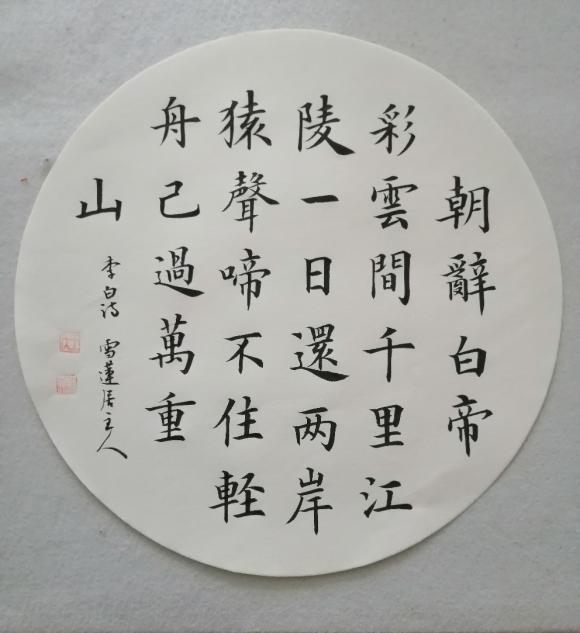 朝辭白帝
彩雲間千里江
陵一日還两岸
猿聲啼不住軽
舟己過萬重
山
李白诗 雪蓮居主人